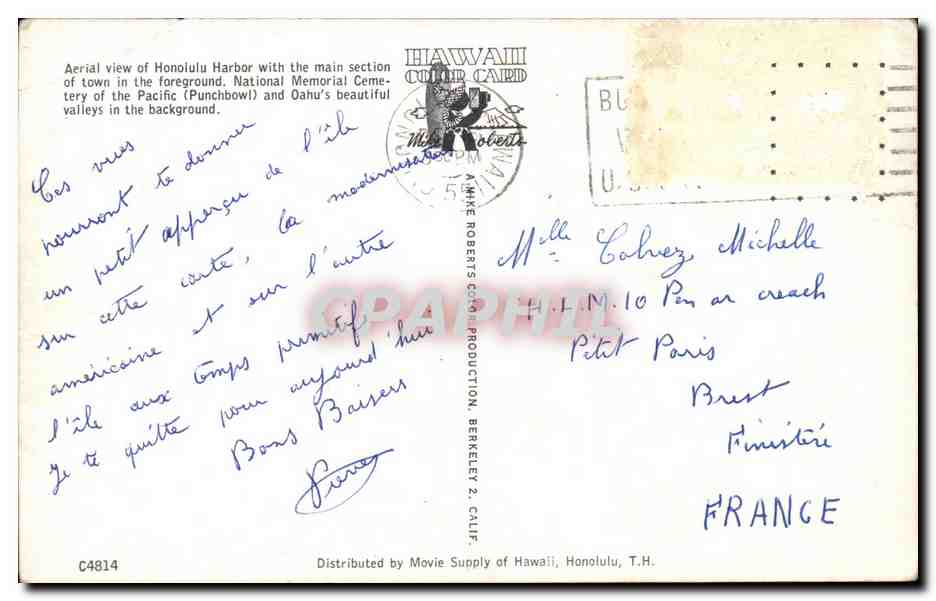 Aerial view of Honolulu Harbor with the main section
of town in the foreground. National Memorial Ceme-
tery of the Pacific (Punchbowl) and Oahu's beautiful
valleys in the background.
HAWAII
COLOR CARD
Mike Roberts
PM
55
BU
Ces vues
pourront te donner
un petit apperçu de l'île
sur cette carte, la modernisation
américaine et sur l'autre
l'île aux temps primitif
Je te quitte pour aujourd'hui
Bons Baisers
Pierre
A MIKE ROBERTS COLOR PRODUCTION, BERKELEY 2, CALIF.
Mlle Calvez, Michelle
H.L.M. 10 Pen ar creach
Petit Paris
Brest
Finistère
FRANCE
CPAPHIL
C4814
Distributed by Movie Supply of Hawaii, Honolulu, T.H.